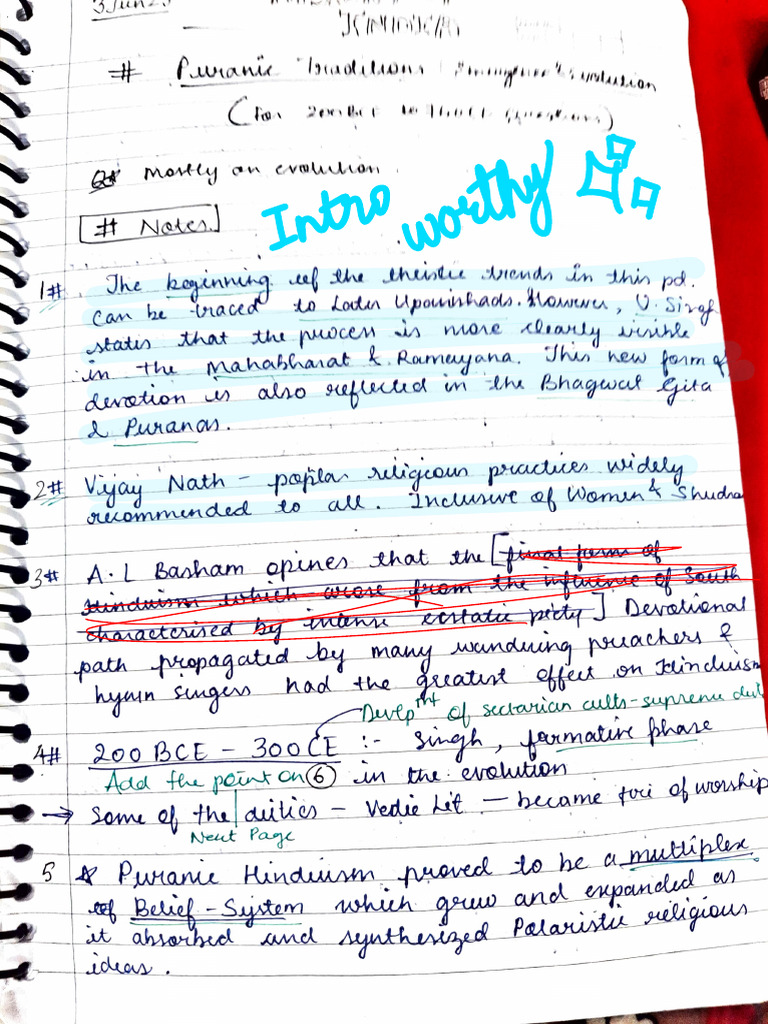 3 Jun 23
# Puranic Traditions: Evolution
(For 200 BCE to
Q* Mostly on evolution.
# Notes
Intro worthy
1# The beginning of the theistic trends in this pd.
can be traced to Later Upanishads. However, U. Singh
states that the process is more clearly visible
in the Mahabharat & Ramayana. This new form of
devotion is also reflected in the Bhagwat Gita
& Puranas.
2# Vijay Nath - poplar religious practices widely
recommended to all. Inclusive of Women & Shudra
3# A.L Basham opines that the [final form of
Hinduism which arose from the influence of South
characterised by intense ecstatic piety] Devotional
path propagated by many wandering preachers &
hymn singers had the greatest effect on Hinduism
Devlpmt of sectarian cults - supreme deit
4# 200 BCE - 300 CE :- Singh, formative phase
Add the point on 6 in the evolution
→ Some of the deities - Vedic Lit - became foci of worship
Next Page
5 * Puranic Hinduism proved to be a multiplex
of Belief-System which grew and expanded as
it absorbed and synthesized Polaristic religious
ideas.